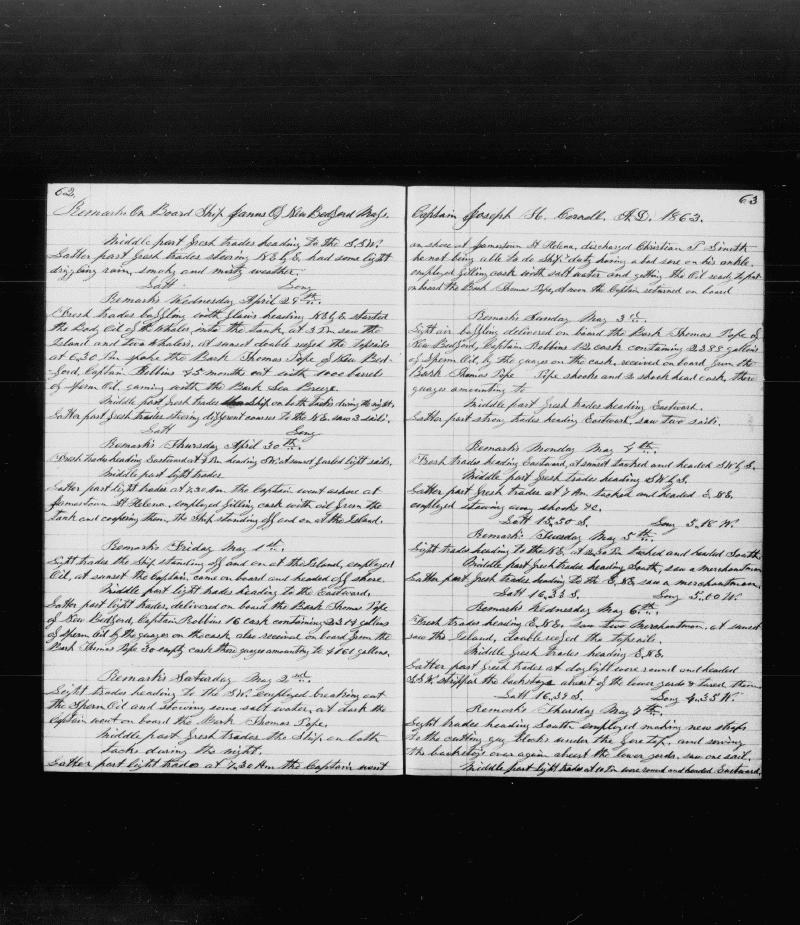 62.
Remarks On Board Ship Janus Of New Bedford Mass.
Middle part fresh trades heading to the S.S.W.
Latter part fresh trades steering N.E. by E. had some light
drizzling rain, smoky and misty weather.
Latt Long
Remarks Wednesday April 29th.
Fresh trades baffling with flaws heading N.E. by E. started
the Body Oil of the Whales, into the tank, at 3 Pm saw the
Island and two Whalers, at sunset double reefed the topsails
at 6,30 Pm spoke the Bark Thomas Pope of New Bed-
ford, Captain Robbins 45 months out with 1000 barrels
of Sperm Oil, gaming with the Bark Sea Breeze.
Middle part fresh trades Ship on both tacks during the night.
Latter part fresh trades steering different courses to the N.E. saw 3 sails.
Latt Long
Remarks Thursday April 30th.
Fresh trades heading Eastward at Pm heading S.W. at sunset furled light sails.
Middle part light trades.
Latter part light trades at 7,30 Am. the Captain went ashore at
Jamestown St Helena, employed filling cask with oil from the
tank and coopering them, the Ship standing off and on at the Island.
Remarks Friday May 1st.
Light trades the Ship standing off and on at the Island, employed
Oil, at sunset the Captain came on board and headed off shore.
Middle part light trades heading to the Eastward.
Latter part light trades, delivered on board the Bark Thomas Pope
of New Bedford, Captain Robbins 16 cask containing 2314 gallons
of Sperm Oil by the guages on the cask, also received on board from the
Bark Thomas Pope 30 empty cask these guages amounting to 4161 gallons.
Remarks Saturday May 2nd.
Light trades heading to the S.W. employed breaking out
the Sperm Oil and stowing some salt water, at dark the
Captain went on board the Bark Thomas Pope.
Middle part fresh trades the Ship on both
tacks during the night.
Latter part light trades at 7,30 Am the Captain went
63
Captain Joseph H. Cornell. A.D. 1863.
on shore at Jamestown St Helena, discharged Christian P. Smith
he not being able to do Ship's duty having a bad sore on his ankle.
employed filling cask with salt water and getting the Oil ready to put
on board the Bark Thomas Pope, at noon the Captain returned on board
Remarks Sunday May 3rd.
Light air baffling delivered on board the Bark Thomas Pope of
New Bedford, Captain Robbins 12 cask containing 2385 gallons
of Sperm Oil, by the guages on the cask, received on board from the
Bark Thomas Pope Pipe shooks and 2 shook head cask, there
guages amounting to
Middle part fresh trades heading Eastward.
Latter part strong trades heading Eastward, saw two sails.
Remarks Monday May 4th.
Fresh trades heading Eastward, at sunset tacked and headed S.W. by S.
Middle part fresh trades heading S.W. by S.
Latter part fresh trades at 7 Am tacked and headed E.N.E.
employed stowing away shooks &c.
Latt 15,50 S. Long 5,18 W.
Remarks Tuesday May 5th.
Light trades heading to the N.E. at 2,30 Pm tacked and headed South.
Middle part fresh trades heading South, saw a merchantman.
Latter part fresh trades heading to the E.N.E. saw a merchantman.
Latt 16,33 S. Long 5,00 W.
Remarks Wednesday May 6th.
Fresh trades heading E.N.E. saw two Merchantmen. at sunset
saw the Island, double reefed the topsails.
Middle fresh trades heading E.N.E.
Latter part fresh trades at daylight wore round and headed
S.S.W. stripped the backstays abreast of the lower yards & tarred them
Latt 16,39 S. Long 4,35 W.
Remarks Thursday May 7th.
Light trades heading South employed making new straps
to the cutting guy blocks under the fore top, and serving
the backstays over again abreast the lower yards. saw one sail.
Middle part light trades at 10 Pm wore round and headed Eastward.